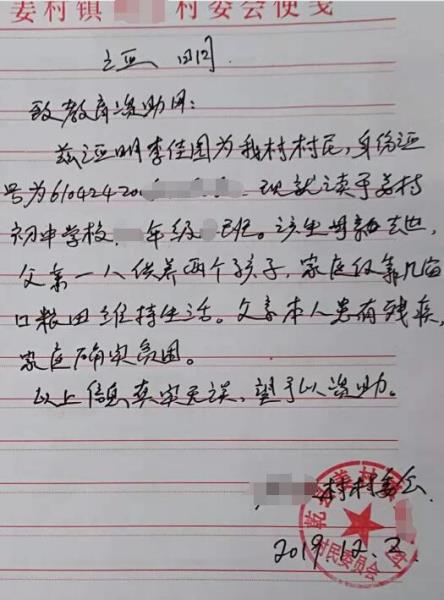 姜村镇 村委会便笺
证 明
致教育资助网：
兹证明李佳图为我村村民，身份证
号为61042420 现就读于姜村
初中学校 年级 班。该生母亲去世，
父亲一人供养两个孩子，家庭仅靠几亩
口粮田维持生活。父亲本人患有残疾，
家庭确实贫困。
以上信息真实无误，望予以资助。
村村委会
2019.12.2
乾 姜村镇 村 村民委员会